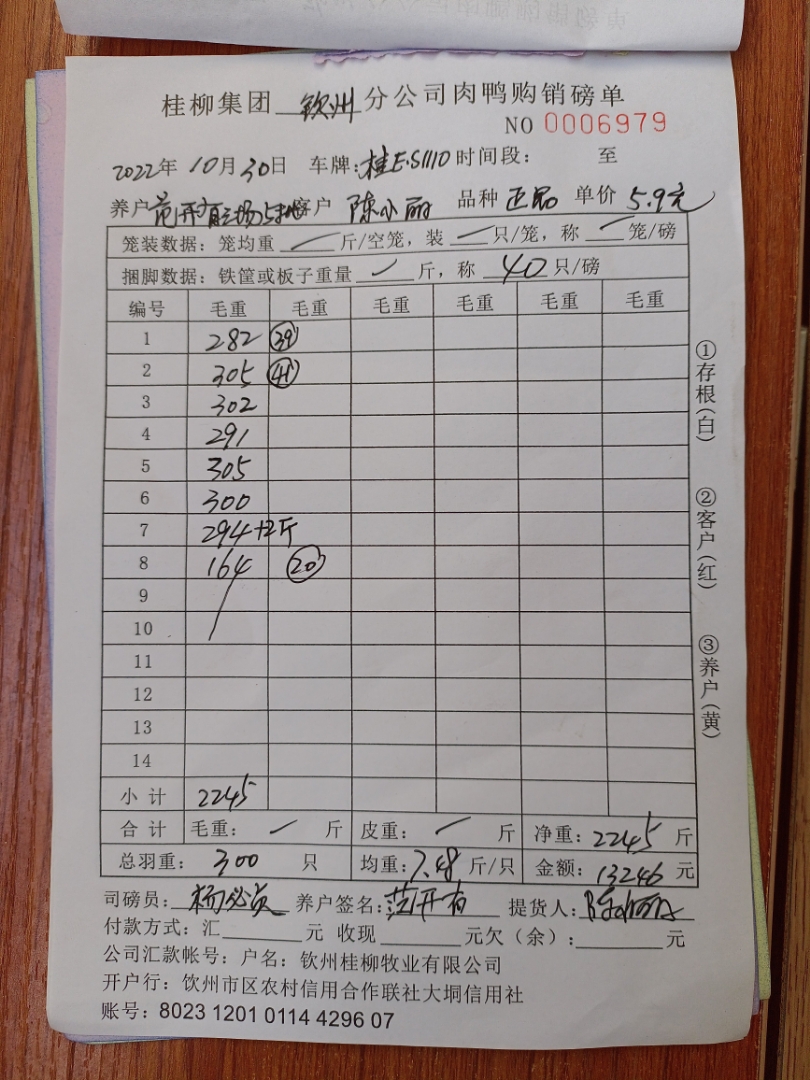 桂柳集团 钦州 分公司肉鸭购销磅单
NO 0006979
2022年 10月30日 车牌：桂E·S1110 时间段： 至
养户 范开有 客户 陈小丽 品种 正品 单价 5.9元
笼装数据：笼均重 / 斤/空笼，装 / 只/笼，称 / 笼/磅
捆脚数据：铁筐或板子重量 / 斤，称 40 只/磅
编号 毛重 毛重 毛重 毛重 毛重 毛重
1 282 39
2 305 41
3 302
4 291
5 305
6 300
7 294+2斤
8 164 20
9
10
11
12
13
14
小计 2245
合计 毛重： / 斤 皮重： / 斤 净重：2245 斤
总羽重：300 只 均重：7.48 斤/只 金额：13246 元
司磅员： 养户签名：范开有 提货人：
付款方式：汇 元 收现 元欠（余）： 元
公司汇款帐号：户名：钦州桂柳牧业有限公司
开户行：钦州市区农村信用合作联社大垌信用社
账号：8023 1201 0114 4296 07
①存根（白）
②客户（红）
③养户（黄）